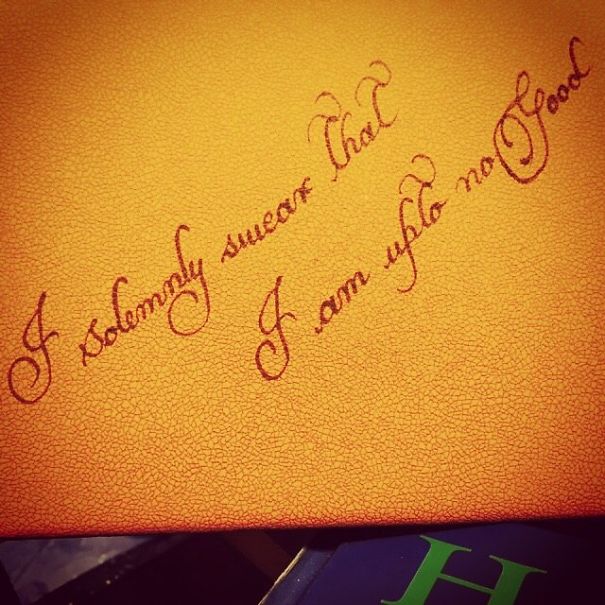 I solemnly swear that
I am upto no Good
H